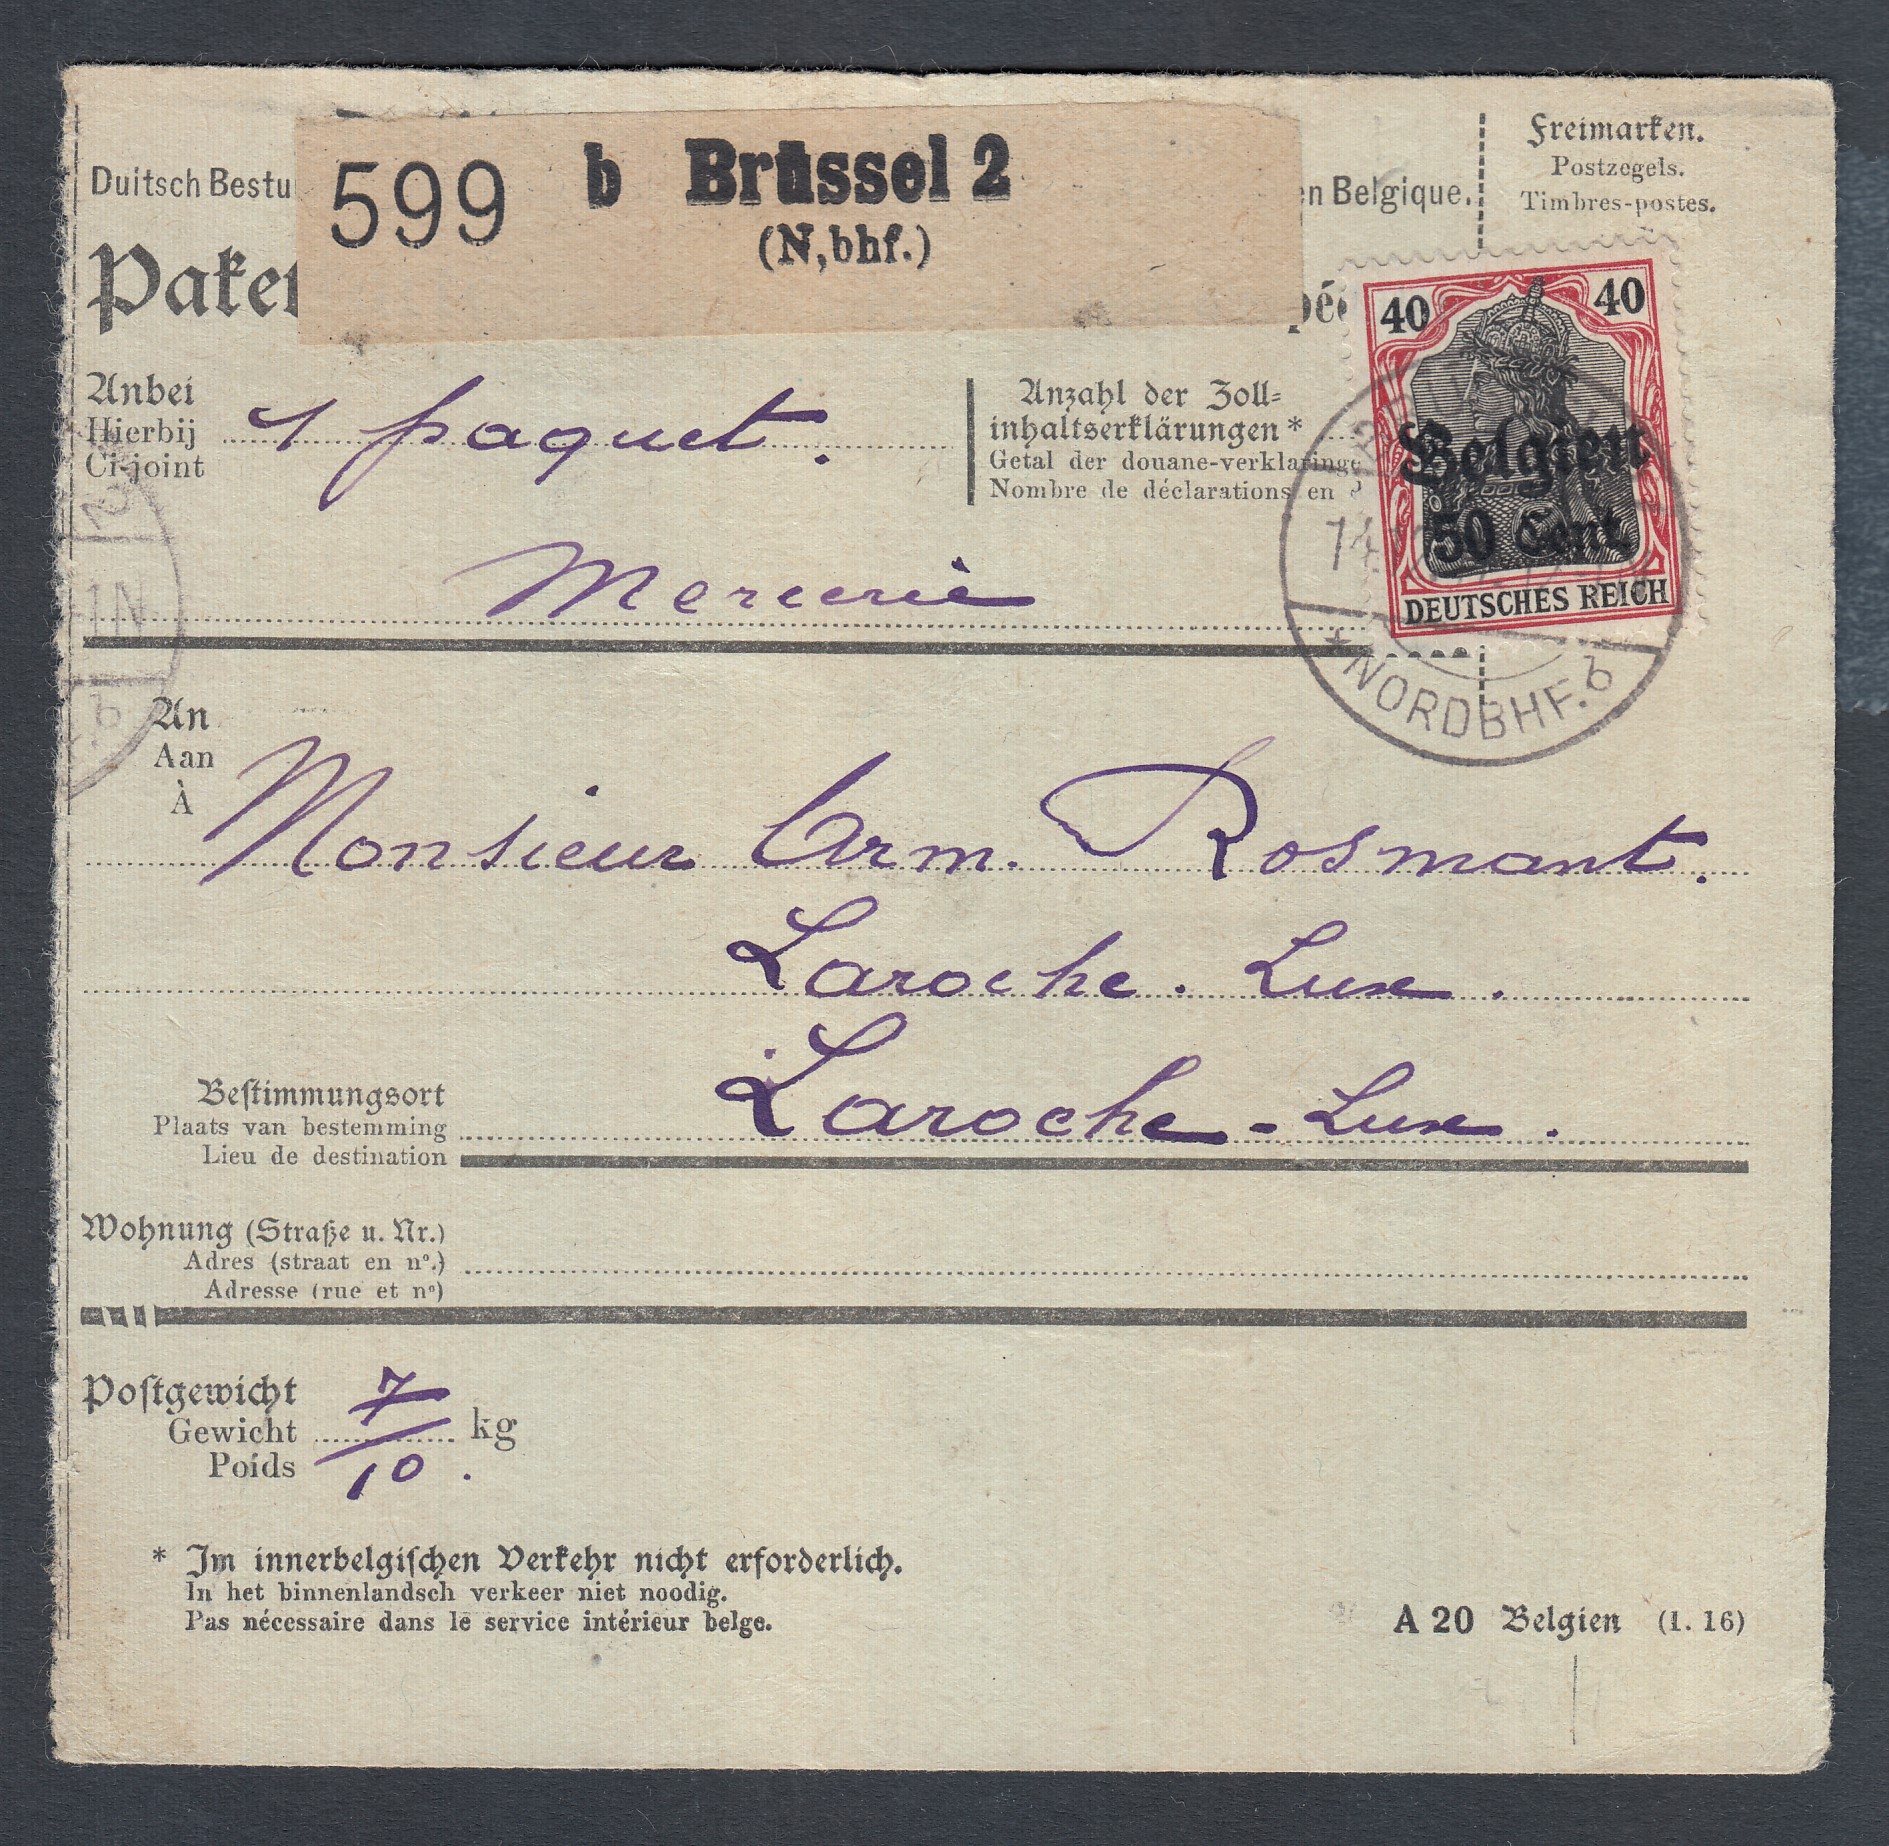 Duitsch Bestu
599 b Brüssel 2
(N,bhf.)
en Belgique.
Freimarken.
Postzegels.
Timbres-postes.
Paket
40 40
Belgien
50 Cent.
DEUTSCHES REICH
Anbei
Hierbij
Ci-joint
1 paquet.
Mercerie
Anzahl der Zoll-
inhaltserklärungen*
Getal der douane-verklaringe
Nombre de déclarations en
14
* NORDBHF. b
1N
b
An
Aan
À
Monsieur Arm. Rosmant.
Laroche. Lux.
Laroche-Lux.
Bestimmungsort
Plaats van bestemming
Lieu de destination
Wohnung (Straße u. Nr.)
Adres (straat en nº.)
Adresse (rue et nº)
Postgewicht
Gewicht
Poids
7/10. kg
* Im innerbelgischen Verkehr nicht erforderlich.
In het binnenlandsch verkeer niet noodig.
Pas nécessaire dans le service intérieur belge.
A 20 Belgien (1. 16)